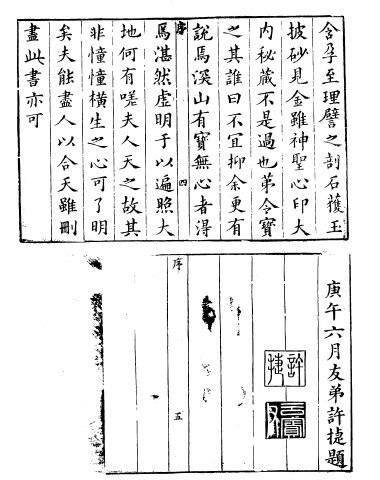 含孕至理譬之剖石獲玉
披砂見金雖神聖心印大
內秘藏不是過也弟令寶
之其誰曰不冝抑余更有
說焉深山有寶無心者得
序 四
焉湛然虛明于以遍照大
地何有嗟夫人天之故其
非憧憧橫生之心可了明
矣夫能盡人以合天雖刪
盡此書亦可
庚午六月友弟許捷題
許捷
序 五